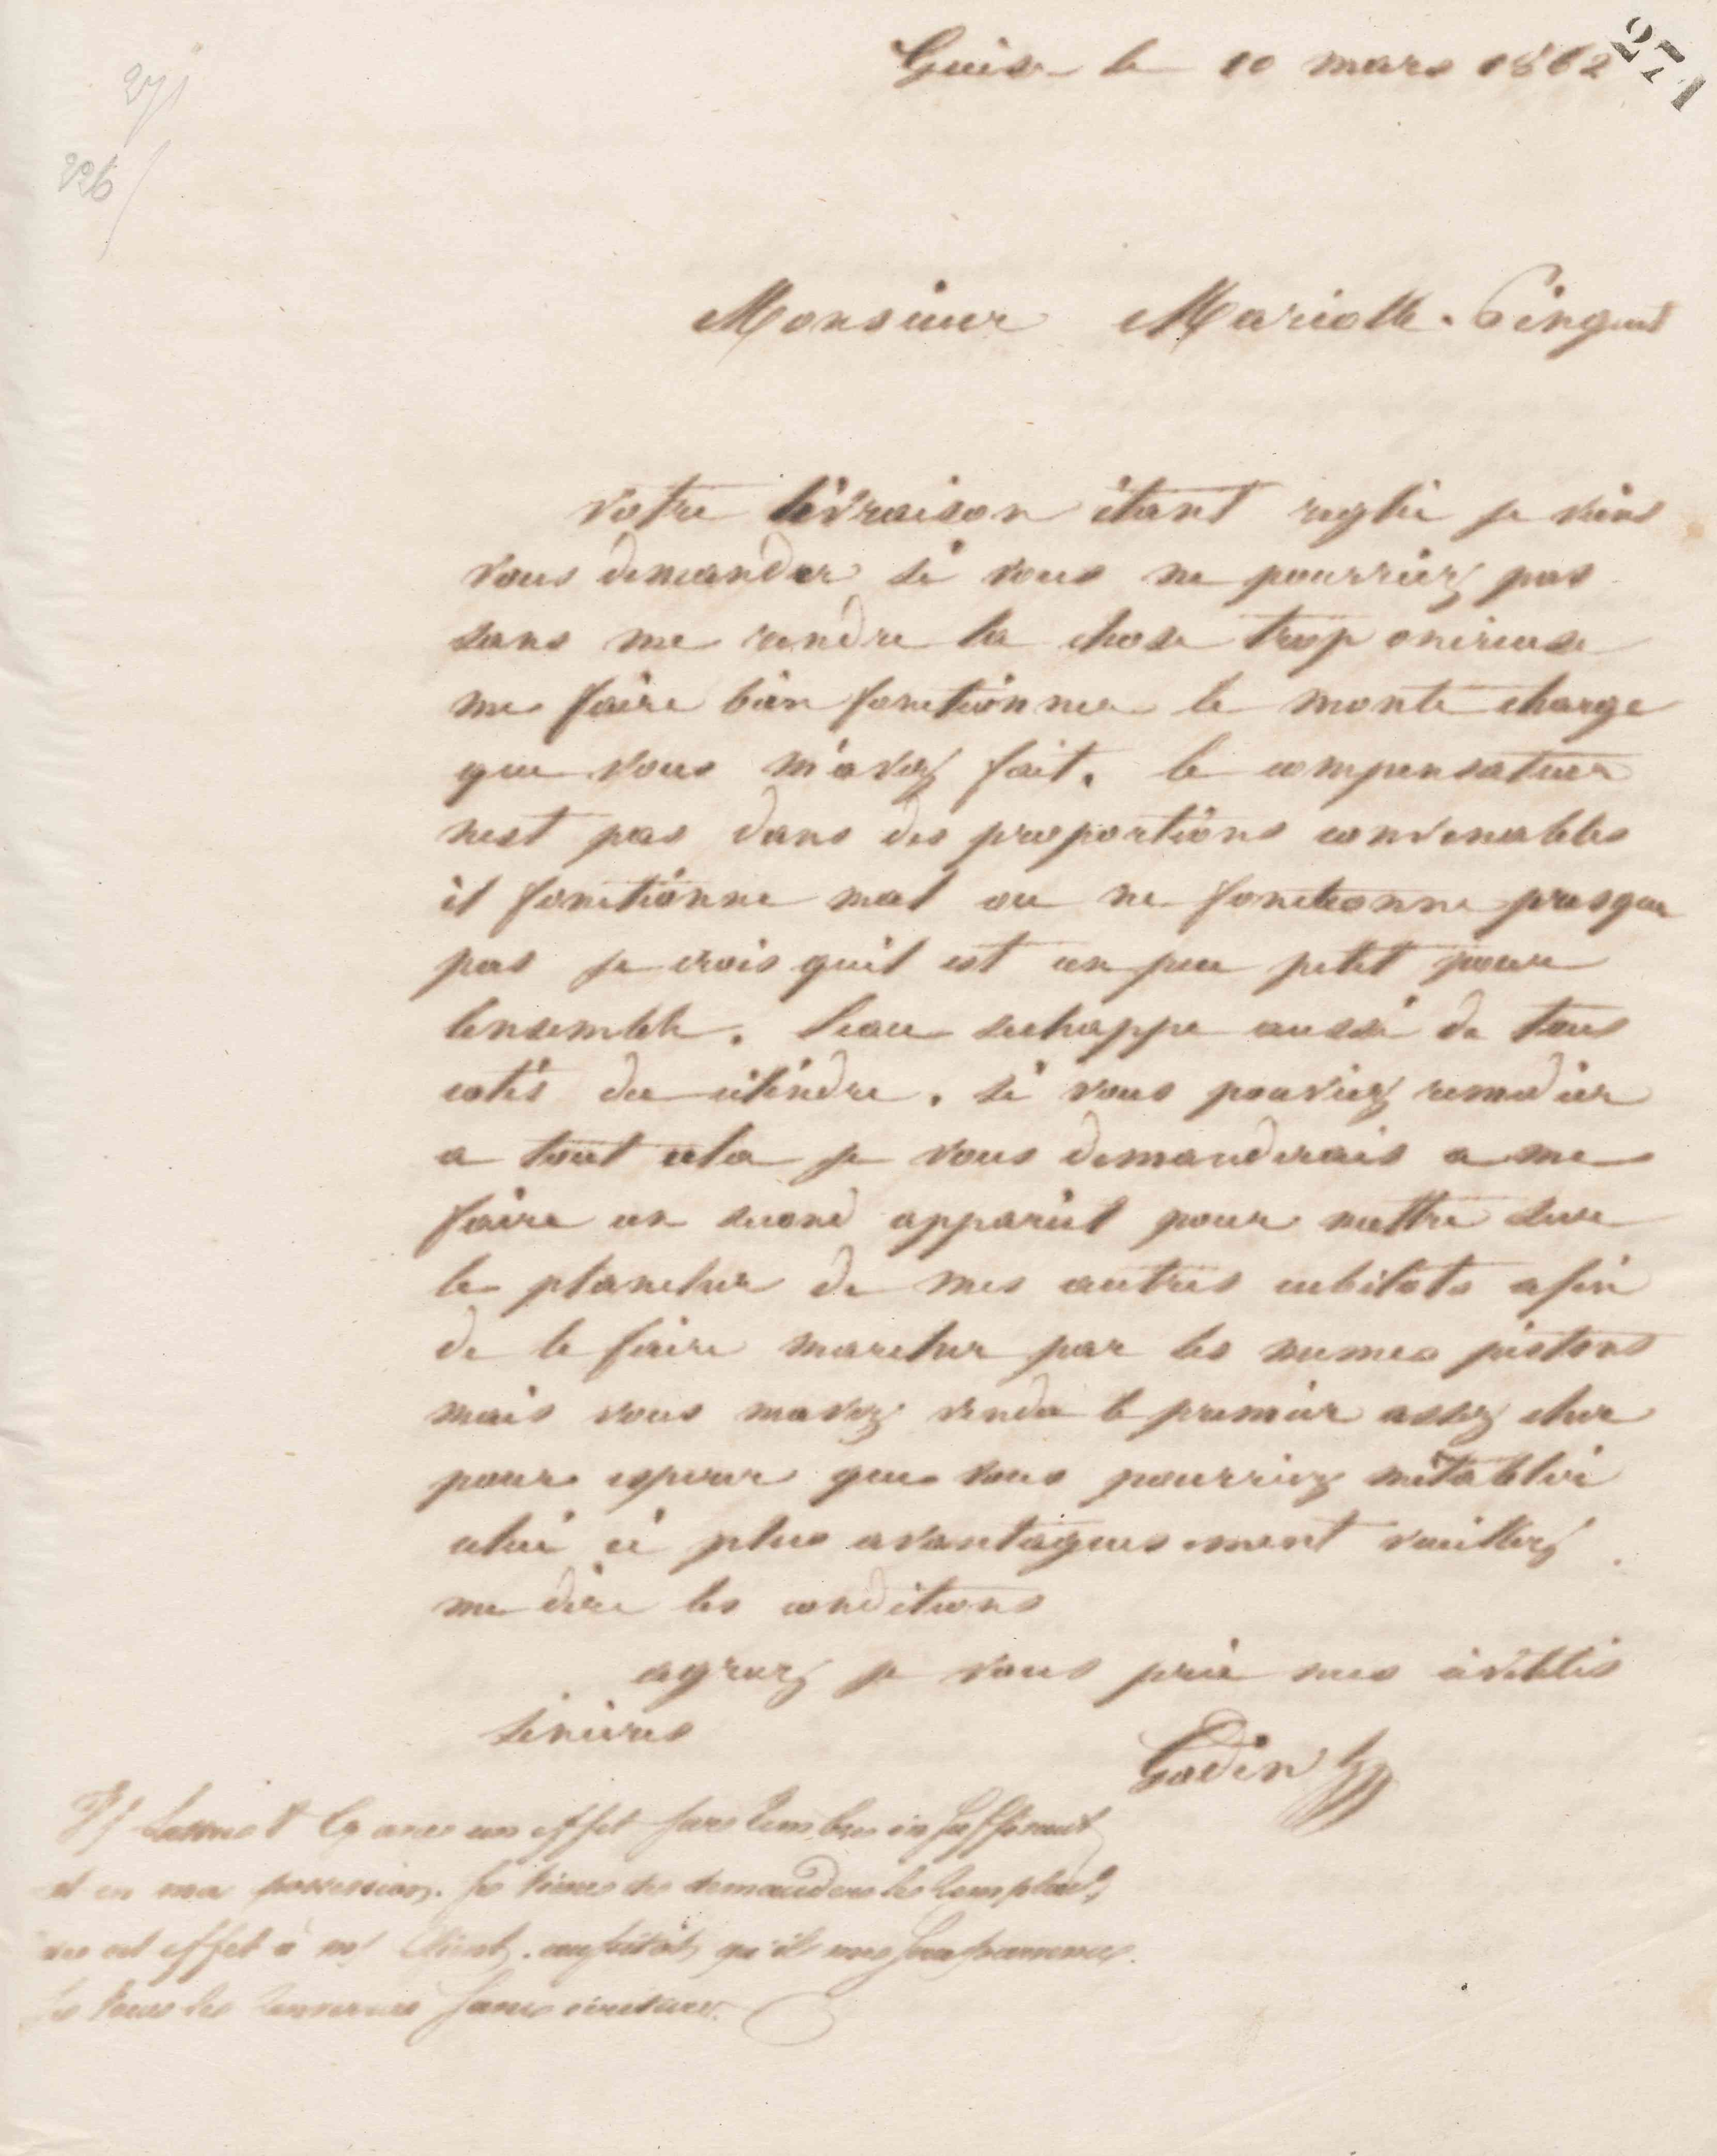 271
271
226
Guise le 10 mars 1862
Monsieur Mariolle-Pinguet
votre livraison étant reglée je viens
vous demander si vous ne pourriez pas
sans me rendre la chose trop onereuse
me faire bien fonctionner le monte charge
que vous m'avez fait. le compensateur
nest pas dans des proportions convenables
il fonctionne mal ou ne fonctionne presque
pas je crois quil est un peu petit pour
lensemble. leau sechappe aussi de tous
cotés du cilindre. si vous pouviez remedier
a tout cela je vous demanderais a me
faire un second appareil pour mettre sur
le plancher de mes autres cubilots afin
de le faire marcher par les memes pistons
mais vous mavez vendu le premier assez cher
pour esperer que vous pourriez métablir
celui ci plus avantageusement veuillez
me dire les conditions
agreez je vous prie mes civilités
sinceres
Godin
un effet sur insuffisant
est en ma possession. Je viens de demander le
cet effet à aussitôt qu'il me sera parvenu
Je vous le renverrai sans